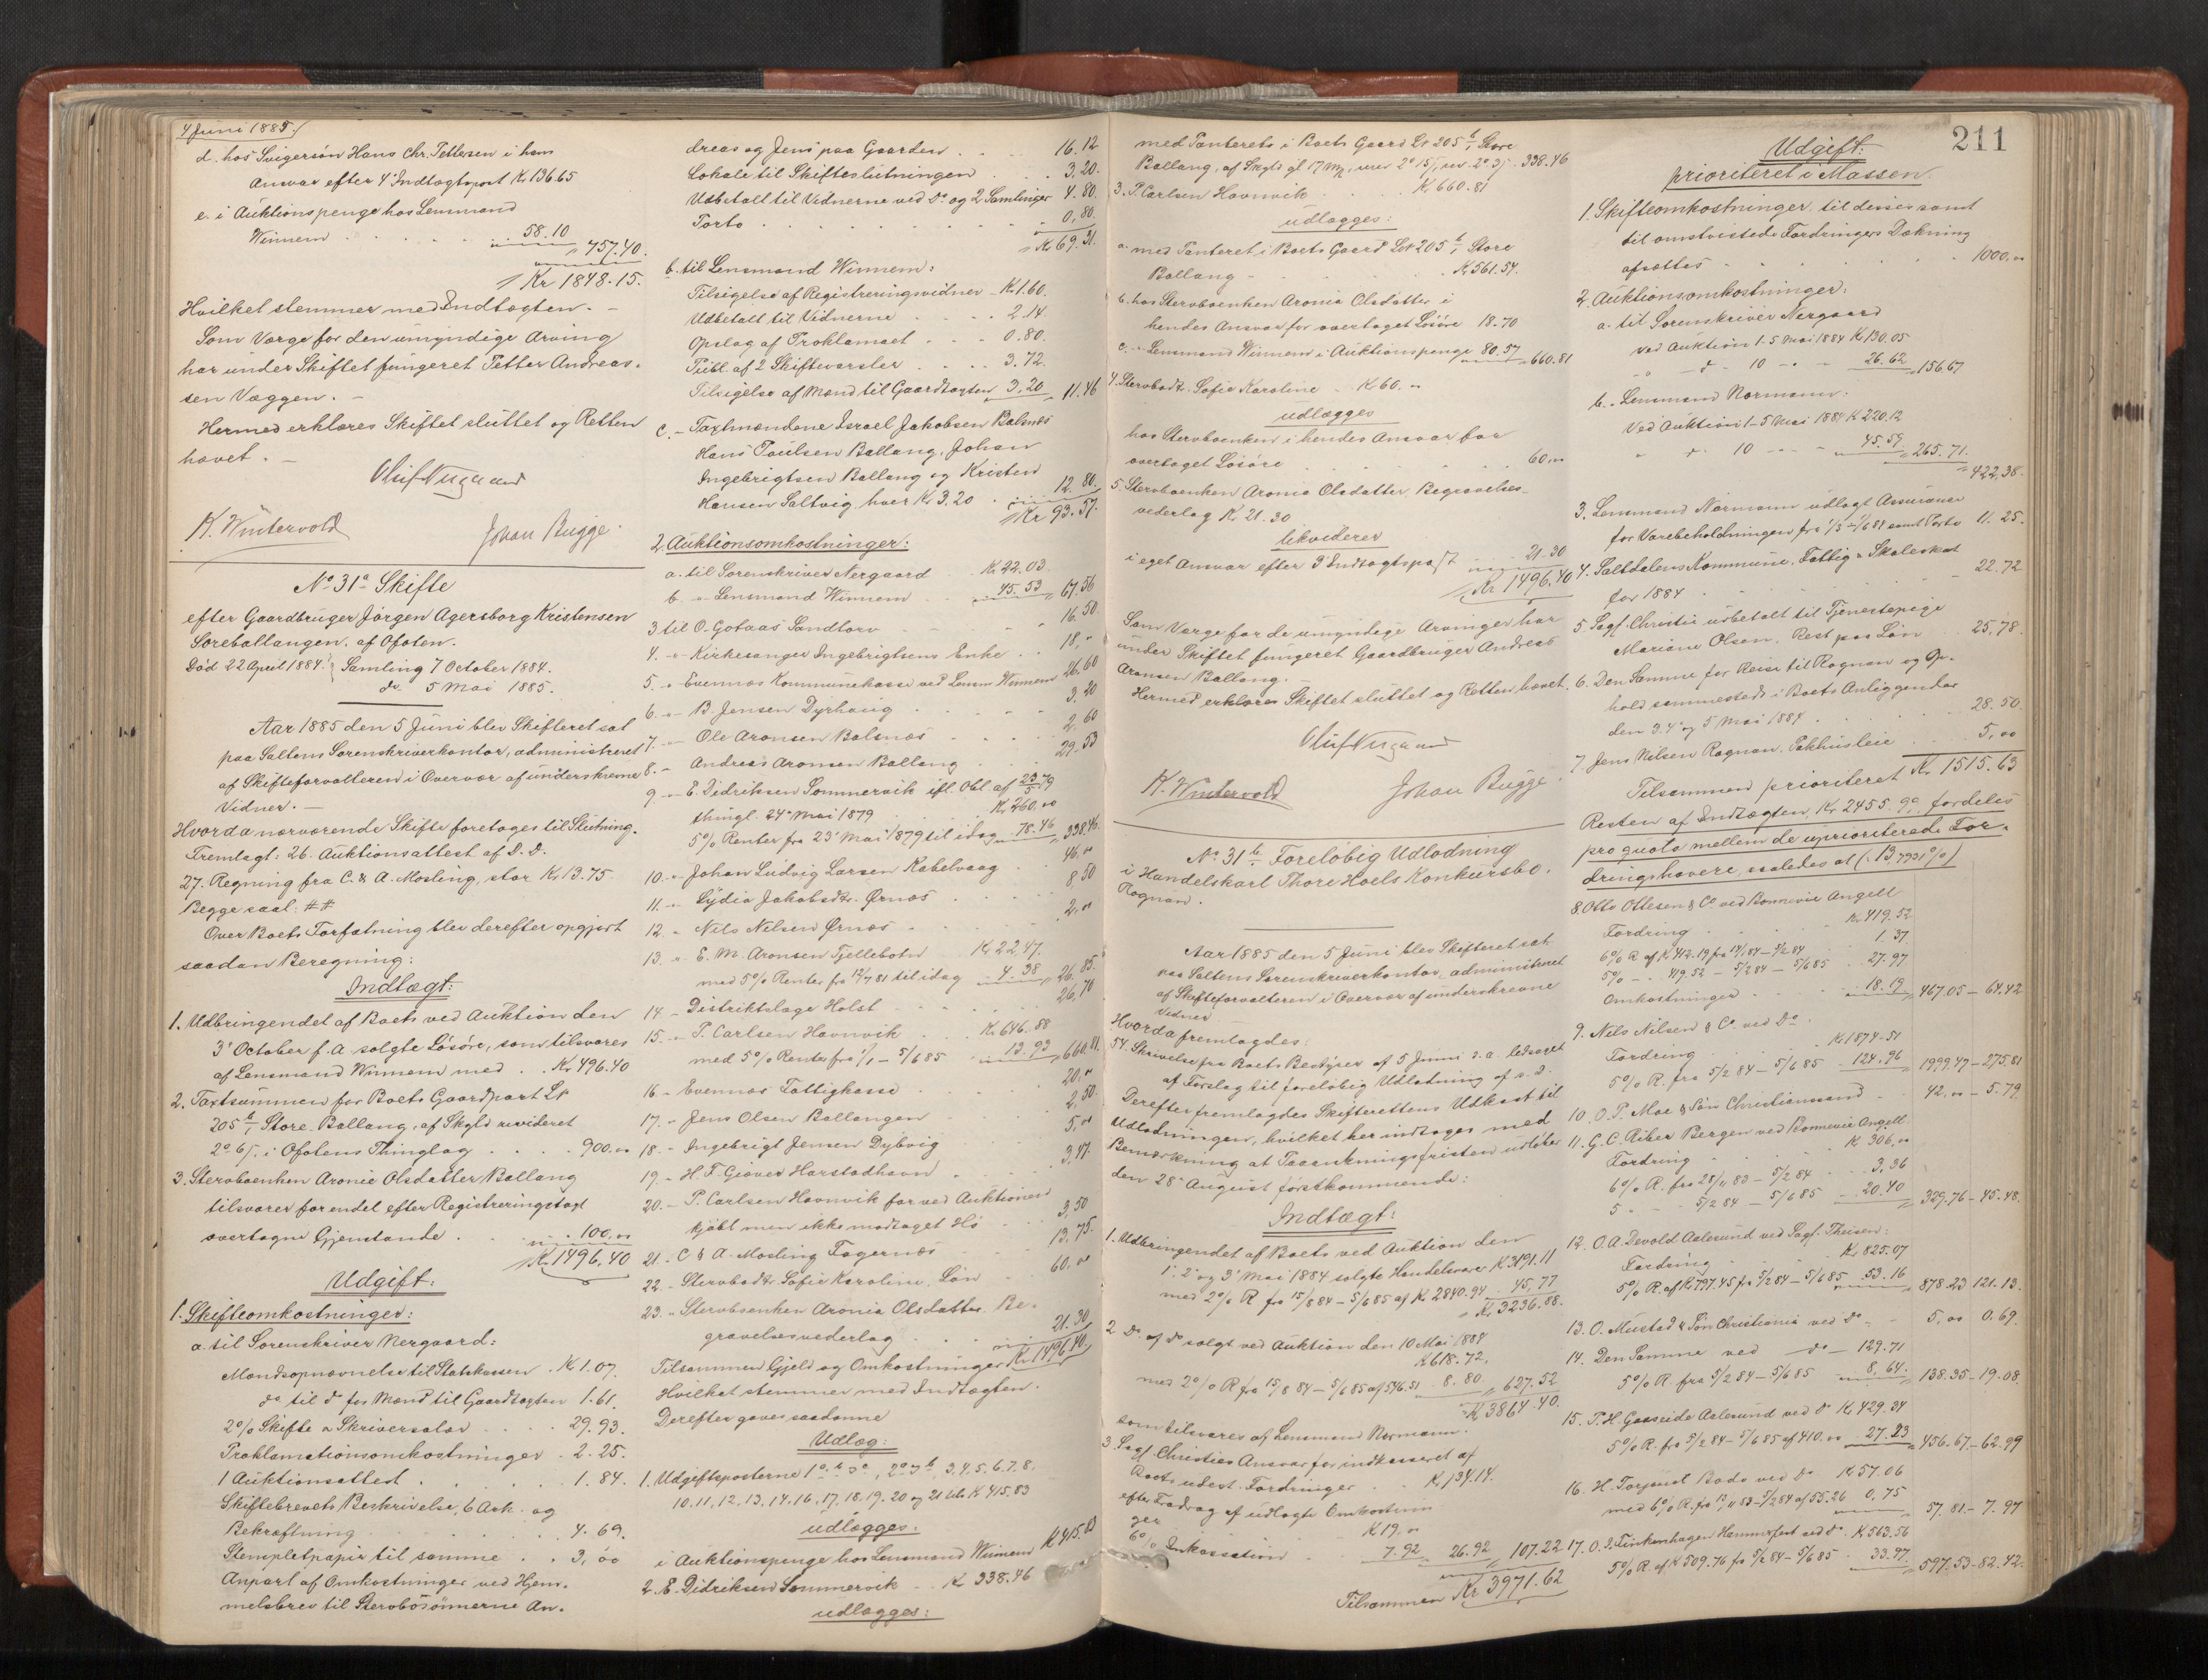 4 Juni 1885.
d. hos Svigersön Hans Chr. Pettersen i hans
Ansvar efter 4' Indtægtspost Kr 136.65
e. i Auktionspenge hos Lensmand
Winnem . . . . . 58.10
" 757.40.
Kr 1848.15.
Hvilket stemmer med Indtægten. -
Som Værge for den umyndige Arving
har under Skiftet fungeret Petter Andreas-
sen Væggen. -
Hermed erklæres Skiftet sluttet og Retten
hævet. -
K. Wintervold Johan Bugge.
No 31a Skifte
efter Gaardbruger Jörgen Agersborg Kristensen
Soreballangen, af Ofoten.
Död 22 April 1884. Samling 7 October 1884.
do. 5 Mai 1885.
Aar 1885 den 5 Juni blev Skifteret sat
paa Saltens Sorenskriverkontor, administreret
af Skifteforvalteren i Overvær af underskrevne
Vidner. -
Hvorda nærværende Skifte foretoges til Slutning.
Fremlagt: 26. Auktionsattest af D. D.
27. Regning fra C. & A. Mosling, stor Kr 13.75.
Begge saal: ##
Over Boets Forfatning blev derefter opgjort
saadan Beregning:
Indtægt:
1. Udbringendet af Boets ved Auktion den
3' October f. A. solgte Lösöre, som tilsvares
af Lensmand Winnem med . . Kr 496.40
2. Taxtsummen for Boets Gaardpart L N
205 b/1 Store Ballang, af Skyld revideret
2 o. 6 /. i Ofotens Thinglag . . . . 900.oo
3. Stervboenken Aronie Olsdatter Ballang
tilsvarer for endel efter Registreringstaxt
overtagne Gjenstande . . . 100,oo
Kr 1496,40
Udgift:
1. Skifteomkostninger:
a. til Sorenskriver Nergaard:
Mandsopnævnelse til Statskassen . Kr 1.07.
do til do for Mænd til Gaardtaxten 1.61.
2% Skifte & Skriversalær . . . . 29.93.
Proklamationsomkostninger . 2.25.
1 Auktionsattest . . . . 1.84.
Skiftebrevets Beskrivelse, 6 Ark og
Bekræftning . . . . . 4.69.
Stemplet papir til samme . . 3,oo
Anpart af Omkostninger ved Hjem-
melsbrev til Stervbosönnerne An-
dreas og Jens paa Gaarden . . . 16.12
Lokale til Skifteslutningen . . . 3.20.
Udbetalt til Vidnerne ved Do og 2 Samlinger 4.80.
Porto . . . . . . . 0,80.
Kr 69.31.
b. til Lensmand Winnem:
Tilsigelse af Registreringsvidner - Kr 1.60.
Udbetalt til Vidnerne . . . 2.14.
Opslag af Proklamaet . . . 0.80.
Publ. af 2 Skiftevarsler . . . 3.72.
Tilsigelse af Mænd til Gaardtaxten 3.20 11.46
c. - Taxtmændene Israel Jakobsen Balsnæs
Hans Poulsen Ballang, Johan
Ingebrigtsen Ballang og Kristen
Hansen Saltvig, hver Kr 3.20 . 12.80.
Kr 93.57.
2. Auktionsomkostninger:
a. til Sorenskriver Nergaard . Kr 22.03.
b. " Lensmand Winnem . . 45.53 67.56
3 til O. Gotaas Sandtorv . . . 16.50.
4. " Kirkesanger Ingebrigtsens Enke . . 18,"
5. " Evennæs Kommunekasse ved Lensm Winnem 26.60
6. " B. Jensen Dyrhaug . . . . 3.20
7. " Ole Aronsen Balsnæs . . . 2.60
8. - Andreas Aronsen Ballang . . . 29.53
9. " E. Didriksen Sommervik ifl. Obl. af 23/5 79
thingl. 24' Mai 1879 . . Kr 260.oo
5% Renter fra 23' Mai 1879 til idag . 78.46 338.46.
10. " Johan Ludvig Larsen Kabelvaag . 46.oo
11. " Lydia Jakobsdtr. Ørnæs . . . 8,50
12. " Nils Nilsen Ørnæs . . . . 2,oo
13. " E. M. Aronsen Fjellebotn Kr 22.47.
med 5% Renter fra 12/7 81 til idag . 4.38 26.85.
14. - Distriktslæge Holst . . . . 26,70
15. " P. Carlsen Havnvik . Kr. 646.88
med 5% Renter fra 1/1 - 5/6 85 . 13.93 660.81.
16. - Evennæs Fattigkasse . . . 20.oo
17. - Jens Olsen Ballangen . . . 2,50.
18. - Ingebrigt Jensen Dybvig . . . 5,oo
19. - H. F. Giæver Harstadhavn . . 3,47.
20. - P. Carlsen Havnvik for ved Auktionen
kjöbt men ikke modtaget Hö . . 3,50
21. - C & A. Mosling Fagernæs . . 13,75.
22. - Stervbodtr. Sofie Karoline, Lön . 60,oo
23. - Stervboenken Aronia Olsdatter Be-
gravelsesvederlag . . . . 21.30
Tilsammen Gjeld og Omkostninger Kr. 1496.40.
Hvilket stemmer med Indtægten.
Derefter gaves saadanne
Udlæg:
1. Udgiftsposterne 1 a. b. c., 2 a og b, 3. 4. 5. 6. 7. 8.
10. 11. 12. 13. 14. 16, 17, 18. 19. 20 og 21 tils Kr 415.83
udlægges:
i Auktionspenge hos Lensmand Winnem Kr 415.83
2. E. Didriksen Sommervik . . Kr 338.46
udlægges:
med Panterets i Boets Gaard L N 205 b/1 Store
Ballang, af Skyld gl 17 , urev 2 o 15 /, rev. 2 o 3 / . 338.46
3. P. Carlsen Havnvik . . . Kr 660.81
udlægges:
a. med Panteret i Boets Gaard L N 205 b/1 Store
Ballang . . . . . Kr 561.54.
b. hos Stervboenken Aronia Olsdatter i
hendes Ansvar for overtaget Lösöre 18.70
c. " Lensmand Winnem i Auktionspenge 80.57 660.81
4. Stervbodtr. Sofie Karoline . Kr 60.oo
udlægges
hos Stervboenken i hendes Ansvar for
overtaget Lösöre . . . . . 60,oo
5. Stervboenken Aronia Olsdatter Begravelses-
vederlag Kr 21.30
likviderer
i eget Ansvar efter 3' Indtægtspost . . 21.30
Kr 1496,40
Som Værge for de umyndige Arvinger har
under Skiftet fungeret Gaardbruger Andreas
Aronsen Ballang.
Hermed erklæres Skiftet sluttet og Retten hævet.
K. Wintervold Johan Bugge.
No 31b Forelöbig Udlodning
i Handelskarl Thore Hoels Konkursbo.
Rognan.
Aar 1885 den 5 Juni blev Skifteret sat
paa Saltens Sorenskriverkontor, administreret
af Skifteforvalteren i Overvær af underskrevne
Vidner
Hvorda fremlagdes:
54. Skrivelse fra Boets Bestyrer af 5 Juni d. a. ledsaget
af Forslag til forelöbig Udlodning af s. D.
Derefter fremlagdes Skifterettens Udkast til
Udlodningen, hvilket her indtages med
Bemærkning at Paaankningsfristen udlöber
den 28' August förstkommende:
Indtægt:
1. Udbringendet af Boets ved Auktion den
1', 2' og 3' Mai 1884 solgte Handelsvarer Kr 3191.11
med 2% R. fra 15/8 84 - 5/6 85 af Kr 2840.94 . 45,77
Kr. 3236.88.
2 Do af Do solgt ved Auktion den 10 Mai 1884
Kr 618.72.
med 2% R fra 15/8 84 - 5/6 85 af 546.51 . 8.80 627.52
Kr 3864.40.
som tilsvares af Lensmand Normann.
3. Sagf. Christies Ansvar for indkasseret af
Boets udest. Fordringer . . Kr 134.14.
efter Fradrag af udlagte Omkostnin
ger Kr 19.oo
6% Inkassation . 7.92 26.92 107.22
Tilsammen Kr 3971.62
211
Udgift:
prioriteret i Massen.
1. Skifteomkostninger, til disses samt
til omtvistede Fordringers Dækning
afsættes . . . . . . 1000.oo
2. Auktionsomkostninger:
a. til Sorenskriver Nergaard
ved Auktion 1-5 Mai 1884 Kr 130.05
" d. 10 " " 26.62 156.67
b. " Lensmand Normann:
Ved Auktion 1-5 Mai 1884 Kr 220.12
" d. 10 " " 45.59 265.71.
422,38.
3. Lensmand Normann udlagt Assurance
for Varebeholdningen fra 1/3 - 1/6 84 samt Porto 11.25.
4. Saltdalens Kommune, Fattig & Skoleskat
for 1884 . . . . . 22.72
5. Sagf. Christie udbetalt til Tjenestepige
Mariane Olsen, Rest paa Lön . . 25,78.
6. Den Samme for Reise til Rognan og Op-
hold sammesteds i Boets Anliggender
den 3. 4' og 5 Mai 1884 . . . 28.50.
7. Jens Nilsen Rognan, Pakhusleie . . 5,oo
Tilsammen prioriteret Kr. 1515.63
Resten af Indtægten, Kr 2455.99 fordeles
pro quota mellem de uprioriterede For-
dringshavere, saaledes at (: 13,7931 %)
8. Otto Ottesen & Co. ved Bonnevie Angell
Fordring . . . Kr. 419.52
6% R. af Kr 412.19 fra 14/1 84 - 5/2 84 1.37
5% - . 419.52 - 5/2 84 - 5/6 85 . 27.97
Omkostninger . . . 18.19 467.05 - 64.42
9. Nils Nilsen & Co. ved Do.
Fordring . . . Kr 1874.51
5% R. fra 5/2 84 - 5/6 85 . 124.96 1999.47 - 275.81
10. O. P. Moe & Søn Christianssand . . 42,oo - 5.79.
11. G. C. Riber Bergen ved Bonnevie Angell
Fordring . . . Kr 306,oo
6% R. fra 28/11 83 - 5/2 84 . . 3,36
5 . . 5/2 84 - 5/6 85 . 20.40 329.76 - 45.48.
12. O. A. Devold Aalesund ved Sagf. Theisen:
Fordring . . . Kr. 825.07
5% R. af Kr 797.45 fra 5/2 84 - 5/6 85 . 53.16 878.23 121.13.
13. O. Mustad & Søn Christiania ved Do. . 5,oo 0.69.
14. Den Samme ved do - 129.71
5% R. fra 5/2 84 - 5/6 85 . 8.64. 138.35 - 19.08.
15. P. H. Gasseide Aalesund ved Do Kr 429.34
5% R. fra 5/2 84 - 5/6 85 af 410.oo . 27.33 456.67 - 62.99
16. H. Torjusen Bodø ved Do. Kr 57.06
med 6% R. fra 13/11 83 - 5/2 84 af 55.26 0,75 57.81 - 7.97
17. O. J. Finkenhagen Hammerfest ved Do. Kr 563.56
5% R. af Kr 509.76 fra 5/2 84 - 5/6 85 . 33.97. 597.53 - 82.42.